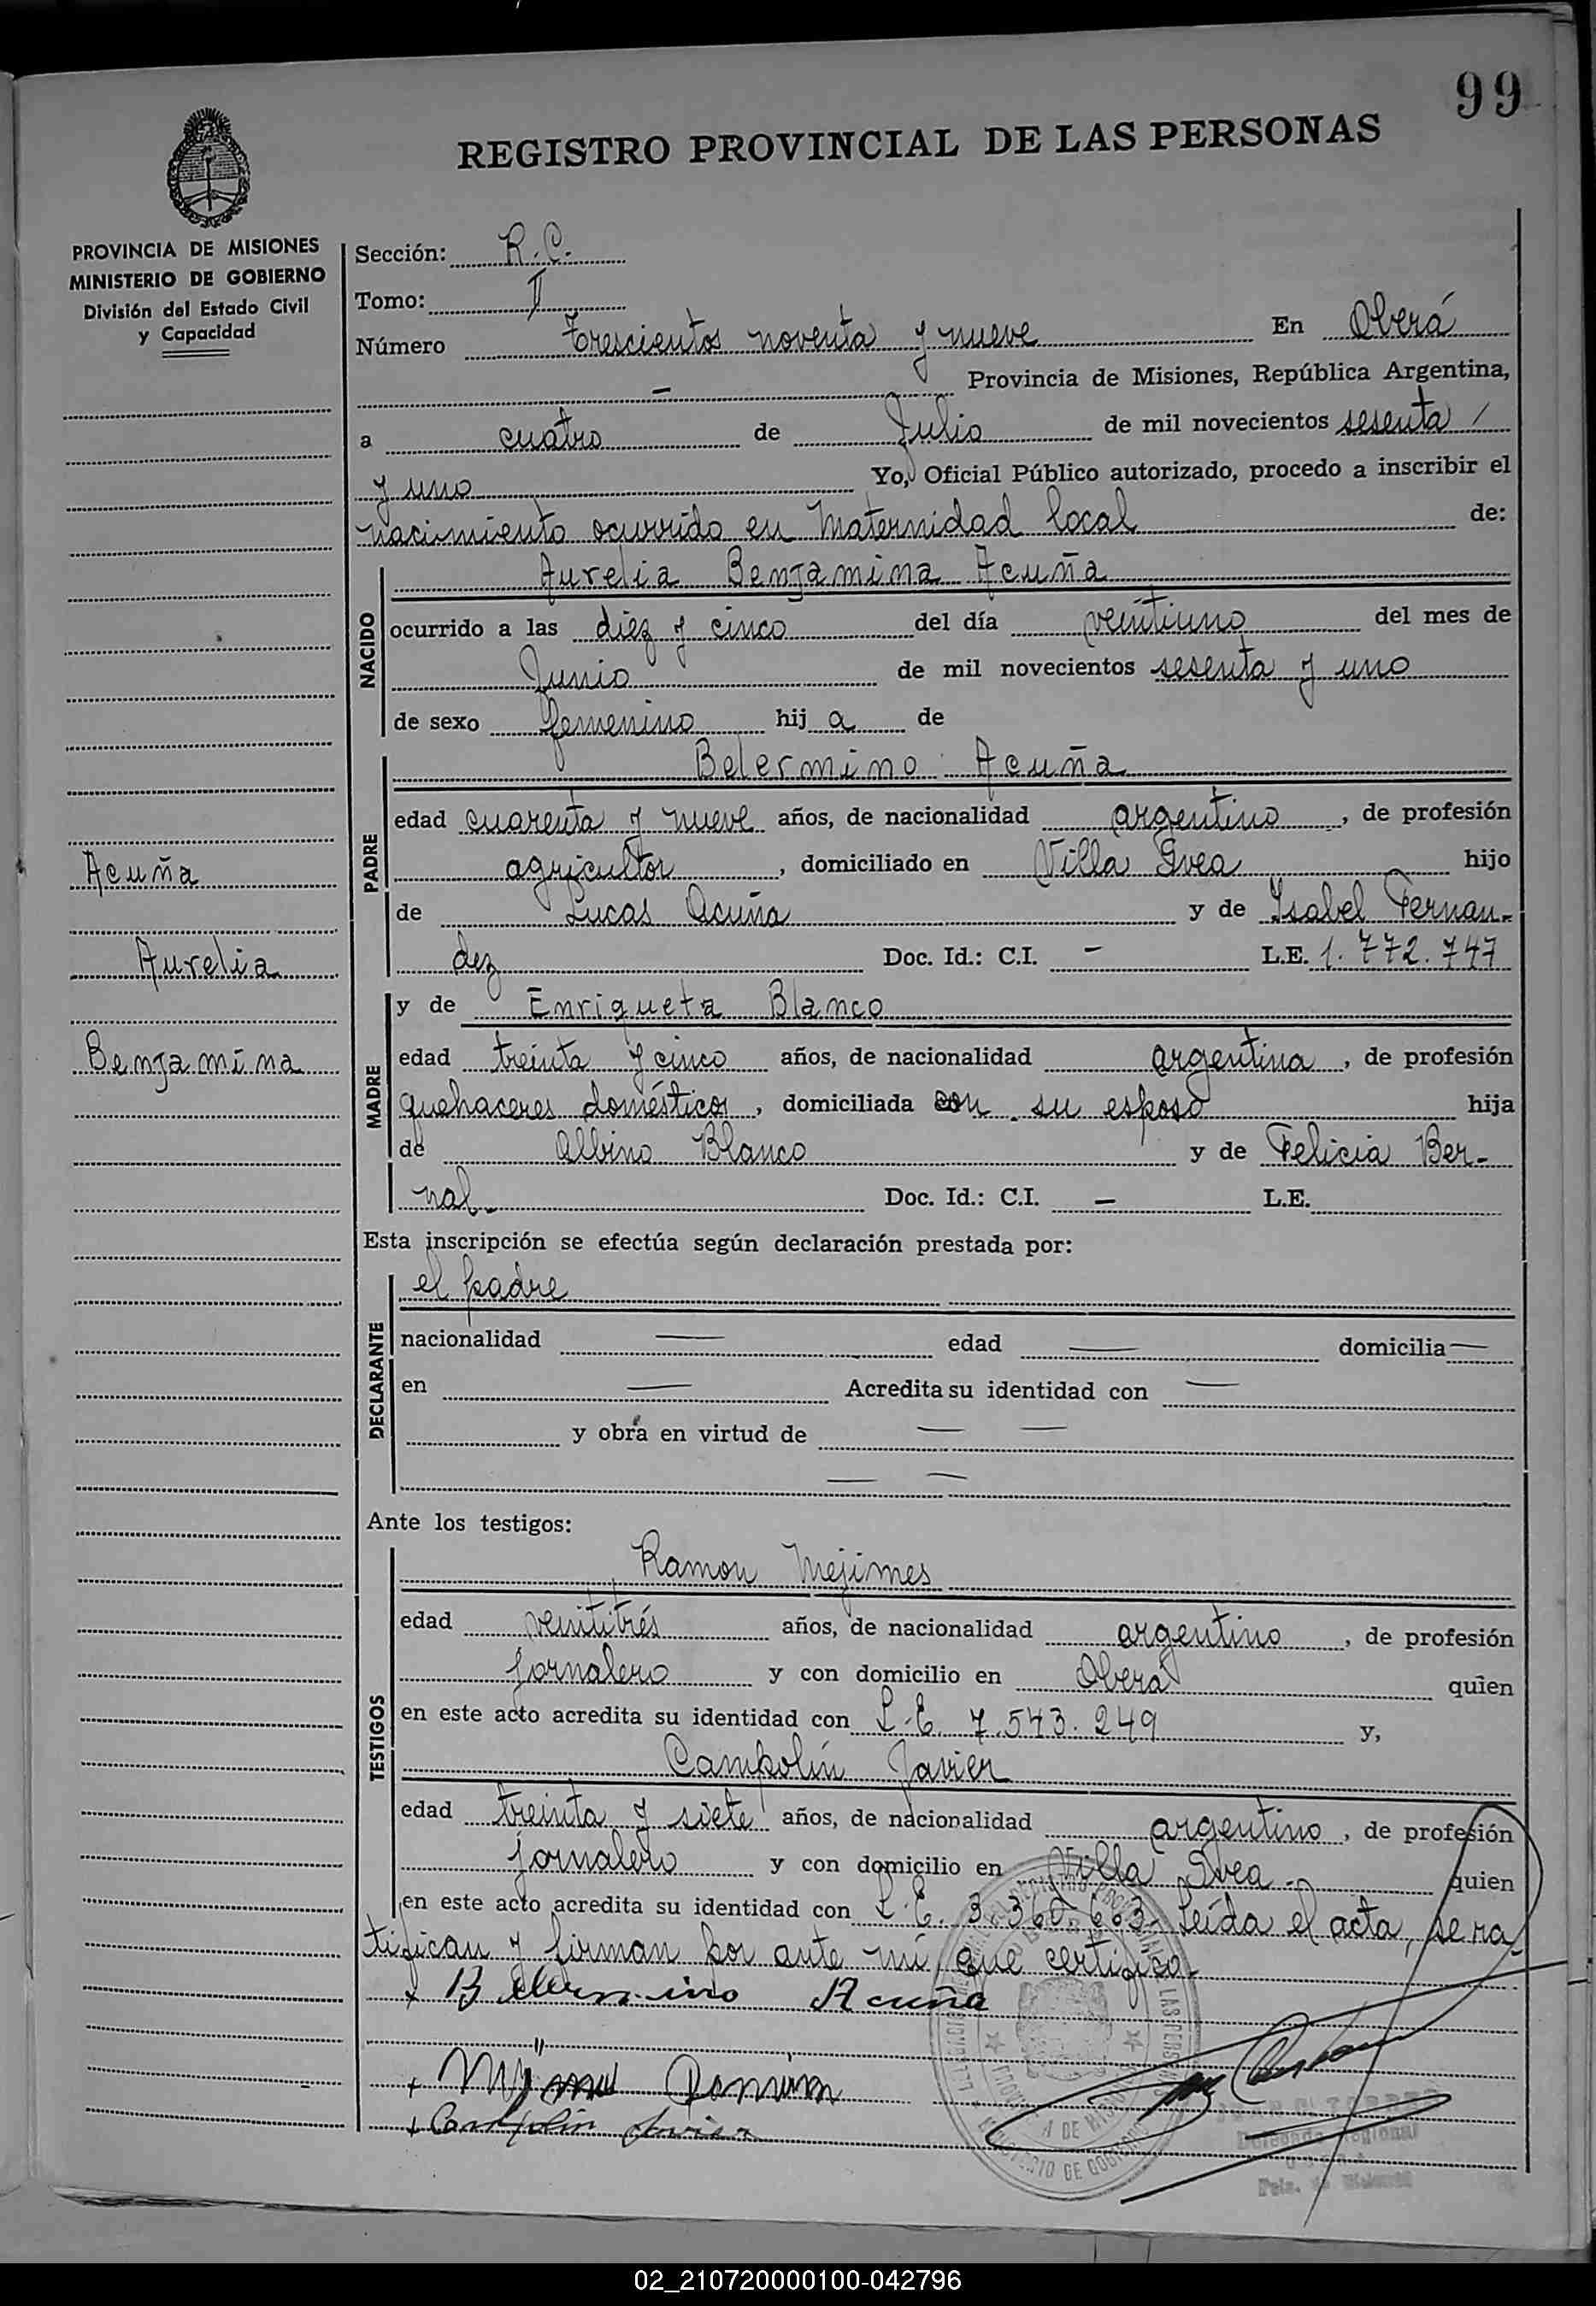 99
REGISTRO PROVINCIAL DE LAS PERSONAS
PROVINCIA DE MISIONES
MINISTERIO DE GOBIERNO
División del Estado Civil
y Capacidad
Sección: R.C.
Tomo: II
Número trescientos noventa y nueve En Oberá
- Provincia de Misiones, República Argentina,
a cuatro de Julio de mil novecientos sesenta /
y uno Yo, Oficial Público autorizado, procedo a inscribir el
nacimiento ocurrido en Maternidad local de:
NACIDO
Aurelia Benjamina Acuña
ocurrido a las diez y cinco del día veintiuno del mes de
Junio de mil novecientos sesenta y uno
de sexo femenino hij a de
PADRE
Belermino Acuña
edad cuarenta y nueve años, de nacionalidad argentino, de profesión
agricultor, domiciliado en Villa Svea hijo
de Lucas Acuña y de Isabel Fernan-
dez Doc. Id.: C.I. - L.E. 1.772.747
Acuña
Aurelia
Benjamina
MADRE
y de Enriqueta Blanco
edad treinta y cinco años, de nacionalidad argentina, de profesión
quehaceres domésticos, domiciliada con su esposo hija
de Albino Blanco y de Felicia Ber-
nal- Doc. Id.: C.I. - L.E.
Esta inscripción se efectúa según declaración prestada por:
DECLARANTE
el padre
nacionalidad — edad — domicilia —
en — Acredita su identidad con —
y obra en virtud de — —
— —
Ante los testigos:
TESTIGOS
Ramon Mejimes
edad veintitrés años, de nacionalidad argentino, de profesión
jornalero y con domicilio en Oberá quien
en este acto acredita su identidad con L.E. 7.543.249 y,
Campolin Javier
edad treinta y siete años, de nacionalidad argentino, de profesión
jornalero y con domicilio en Villa Svea quien
en este acto acredita su identidad con L.E. 3.360.663- Leída el acta, se ra-
tifican y firman por ante mí que certifico.
+ Belermino Acuña
+ Mejimes Ramón
+ Campolin Javier
MINISTERIO DE GOBIERNO
Delegado Regional
02_210720000100-042796